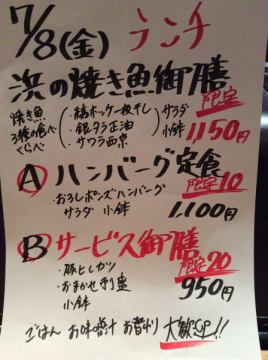 7/8(金) ランチ
浜の焼き魚御膳
限定
焼き魚
3種の食べ
くらべ
・縞ホッケ一夜干し
・銀タラ正油
・サワラ西京
サラダ
小鉢
1,150円
Ⓐハンバーグ定食
・おろしポンズハンバーグ 限定10
サラダ 小鉢 1,100円
Ⓑサービス御膳
・豚ヒレカツ 限定20
・おまかせ刺盛 950円
小鉢
ごはん お味噌汁 お替わり 大歓迎!!